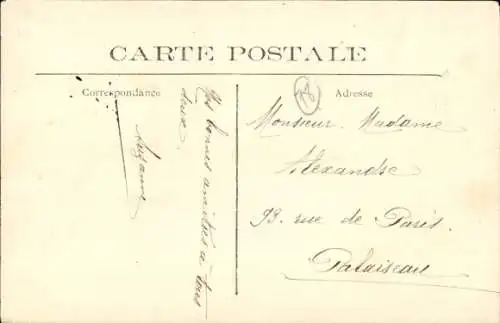 CARTE POSTALE
Correspondance
Adresse
bonnes amitiés à tous
deux.
Suzanne
Monsieur. Madame
Alexandre
93. rue de Paris.
Palaiseau